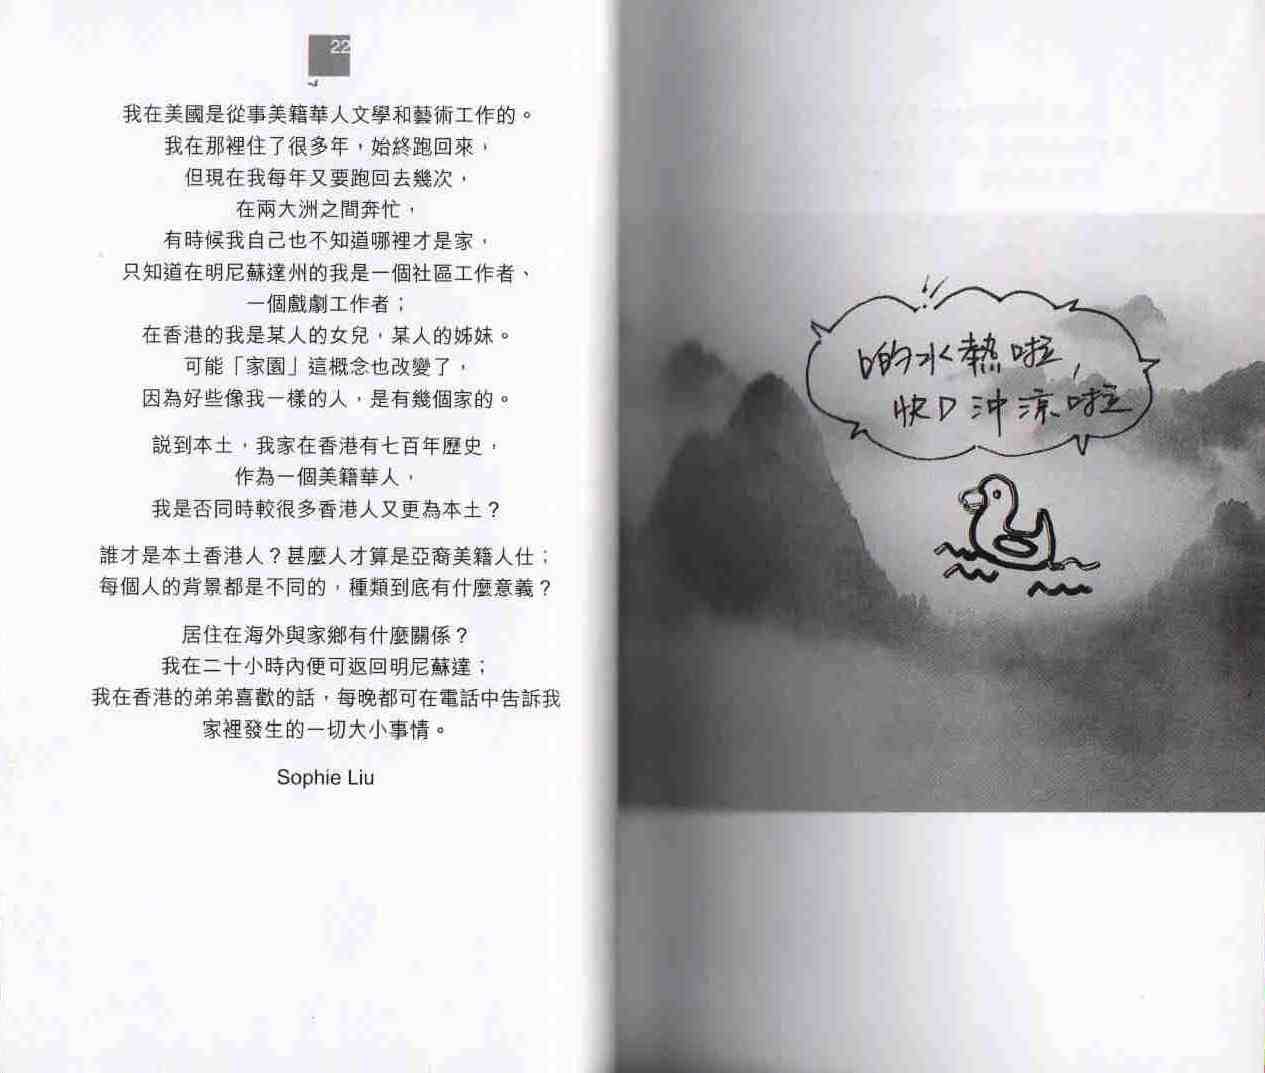 22
我在美國是從事美籍華人文學和藝術工作的。
我在那裡住了很多年，始終跑回來，
但現在我每年又要跑回去幾次，
在兩大洲之間奔忙，
有時候我自己也不知道哪裡才是家，
只知道在明尼蘇達州的我是一個社區工作者、
一個戲劇工作者；
在香港的我是某人的女兒，某人的姊妹。
可能「家園」這概念也改變了，
因為好些像我一樣的人，是有幾個家的。
説到本土，我家在香港有七百年歷史，
作為一個美籍華人，
我是否同時較很多香港人又更為本土？
誰才是本土香港人？甚麼人才算是亞裔美籍人仕；
每個人的背景都是不同的，種類到底有什麼意義？
居住在海外與家鄉有什麼關係？
我在二十小時內便可返回明尼蘇達；
我在香港的弟弟喜歡的話，每晚都可在電話中告訴我
家裡發生的一切大小事情。
Sophie Liu
啲水熱啦，
快D沖涼啦
!!